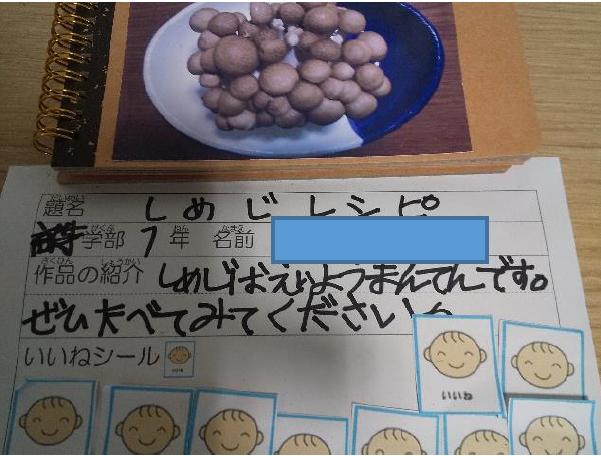 題名 しめじレシピ
学部 1年 名前
作品の紹介 しめじはえいようまんてんです。
ぜひたべてみてください。
いいねシール
いいね